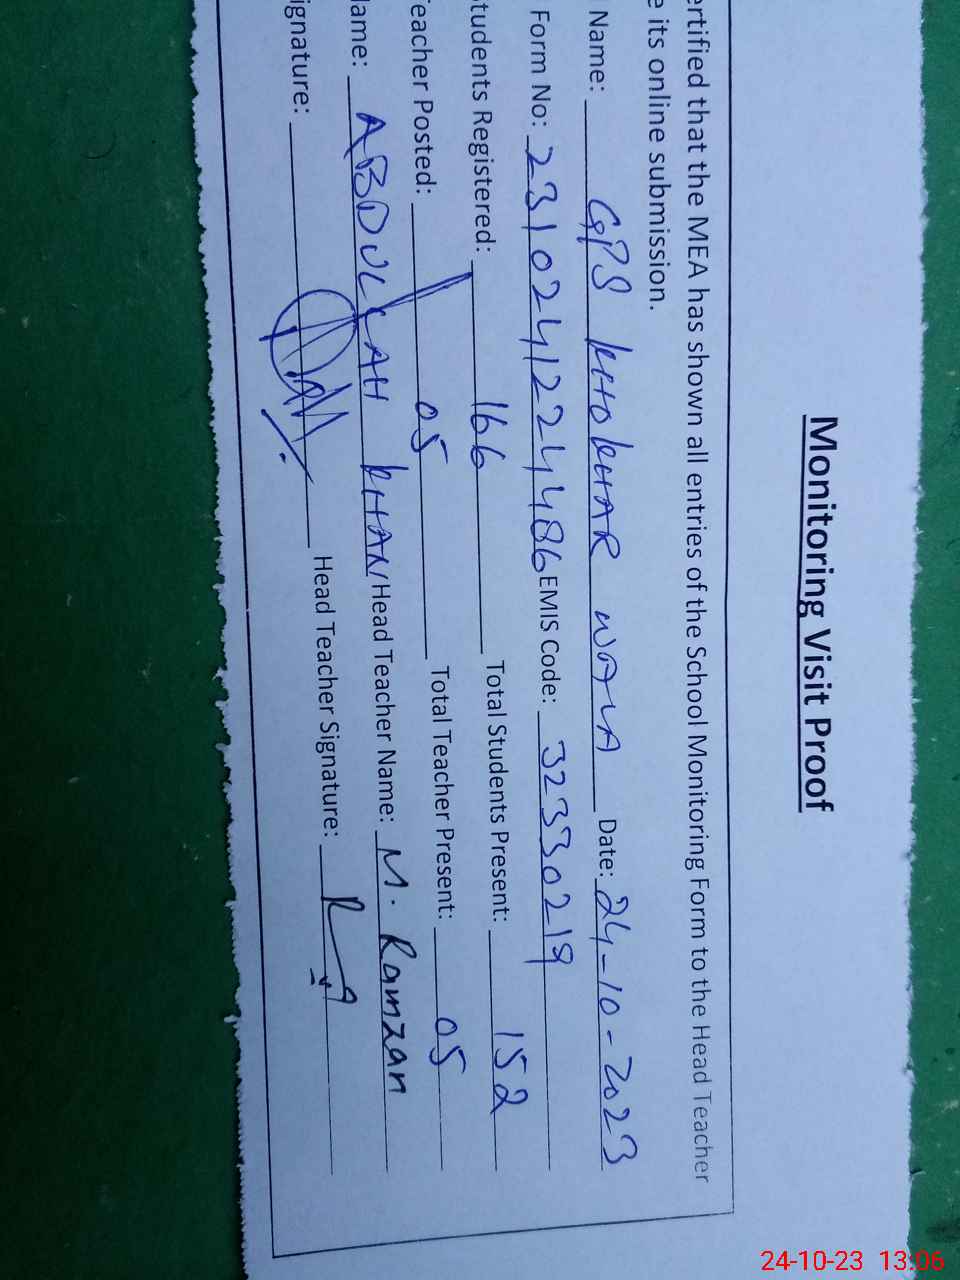 Monitoring Visit Proof
ertified that the MEA has shown all entries of the School Monitoring Form to the Head Teacher
e its online submission.
Name: GPS KHOKHAR WALA Date: 24-10-2023
Form No: 23102412244486 EMIS Code: 32330219
tudents Registered: 166 Total Students Present: 152
eacher Posted: 05 Total Teacher Present: 05
ame: ABDULLAH KHAN Head Teacher Name: M. Ramzan
ignature: Head Teacher Signature:
24-10-23 13:06